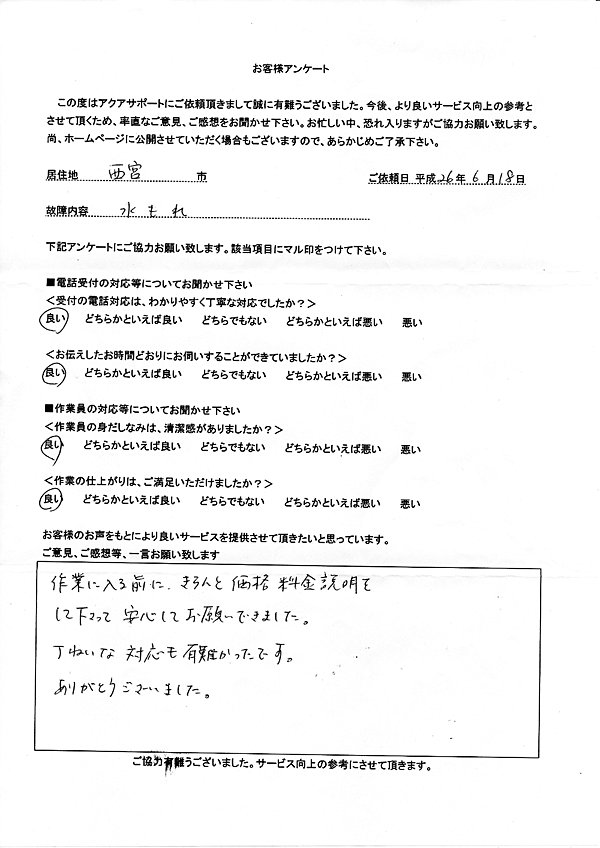 お客様アンケート
この度はアクアサポートにご依頼頂きまして誠に有難うございました。今後、より良いサービス向上の参考と
させて頂くため、率直なご意見、ご感想をお聞かせ下さい。お忙しい中、恐れ入りますがご協力お願い致します。
尚、ホームページに公開させていただく場合もございますので、あらかじめご了承下さい。
居住地 西宮 市 ご依頼日 平成26年6月18日
故障内容 水もれ
下記アンケートにご協力お願い致します。該当項目にマル印をつけて下さい。
■電話受付の対応等についてお聞かせ下さい
＜受付の電話対応は、わかりやすく丁寧な対応でしたか？＞
良い どちらかといえば良い どちらでもない どちらかといえば悪い 悪い
＜お伝えしたお時間どおりにお伺いすることができていましたか？＞
良い どちらかといえば良い どちらでもない どちらかといえば悪い 悪い
■作業員の対応等についてお聞かせ下さい
＜作業員の身だしなみは、清潔感がありましたか？＞
良い どちらかといえば良い どちらでもない どちらかといえば悪い 悪い
＜作業の仕上がりは、ご満足いただけましたか？＞
良い どちらかといえば良い どちらでもない どちらかといえば悪い 悪い
お客様のお声をもとにより良いサービスを提供させて頂きたいと思っています。
ご意見、ご感想等、一言お願い致します
作業に入る前に、きちんと価格料金説明を
して下さって安心してお願いできました。
丁ねいな対応も有難かったです。
ありがとうございました。
ご協力有難うございました。サービス向上の参考にさせて頂きます。